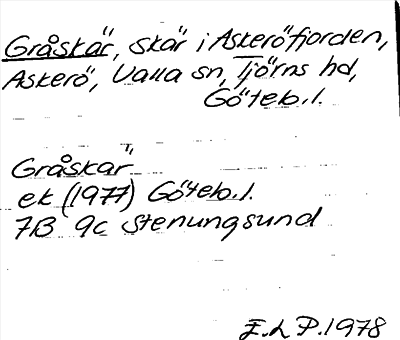 Gråskär, skär i Askeröfjorden,
Askerö, Valla sn, Tjörns hd,
Göteb.l.
Gråskär
ek (1977) Göteb.l.
7B 9c Stenungsund
E.L.P. 1978